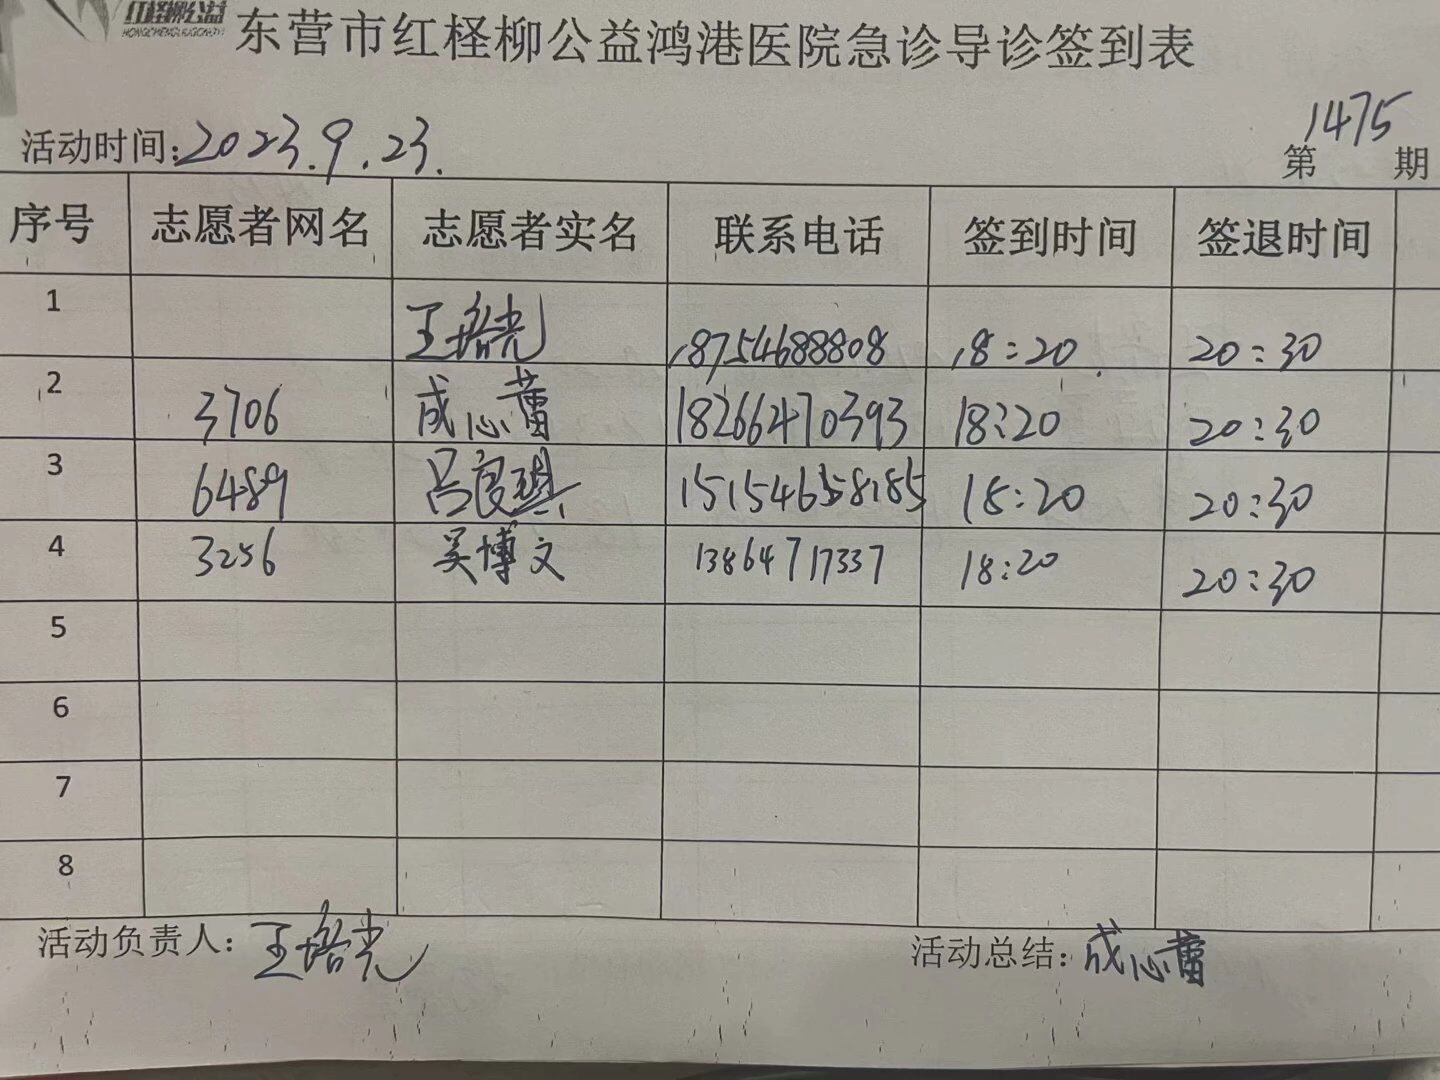 红柽柳公益
东营市红柽柳公益鸿港医院急诊导诊签到表
活动时间:2023.9.23.
第1475期
序号 志愿者网名 志愿者实名 联系电话 签到时间 签退时间
1 王培光 18754688808 18:20 20:30
2 3706 成心蕾 18266470393 18:20 20:30
3 6489 吕良琪 18:20 20:30
4 3256 吴博文 13864717337 18:20 20:30
5
6
7
8
活动负责人:王培光 活动总结:成心蕾